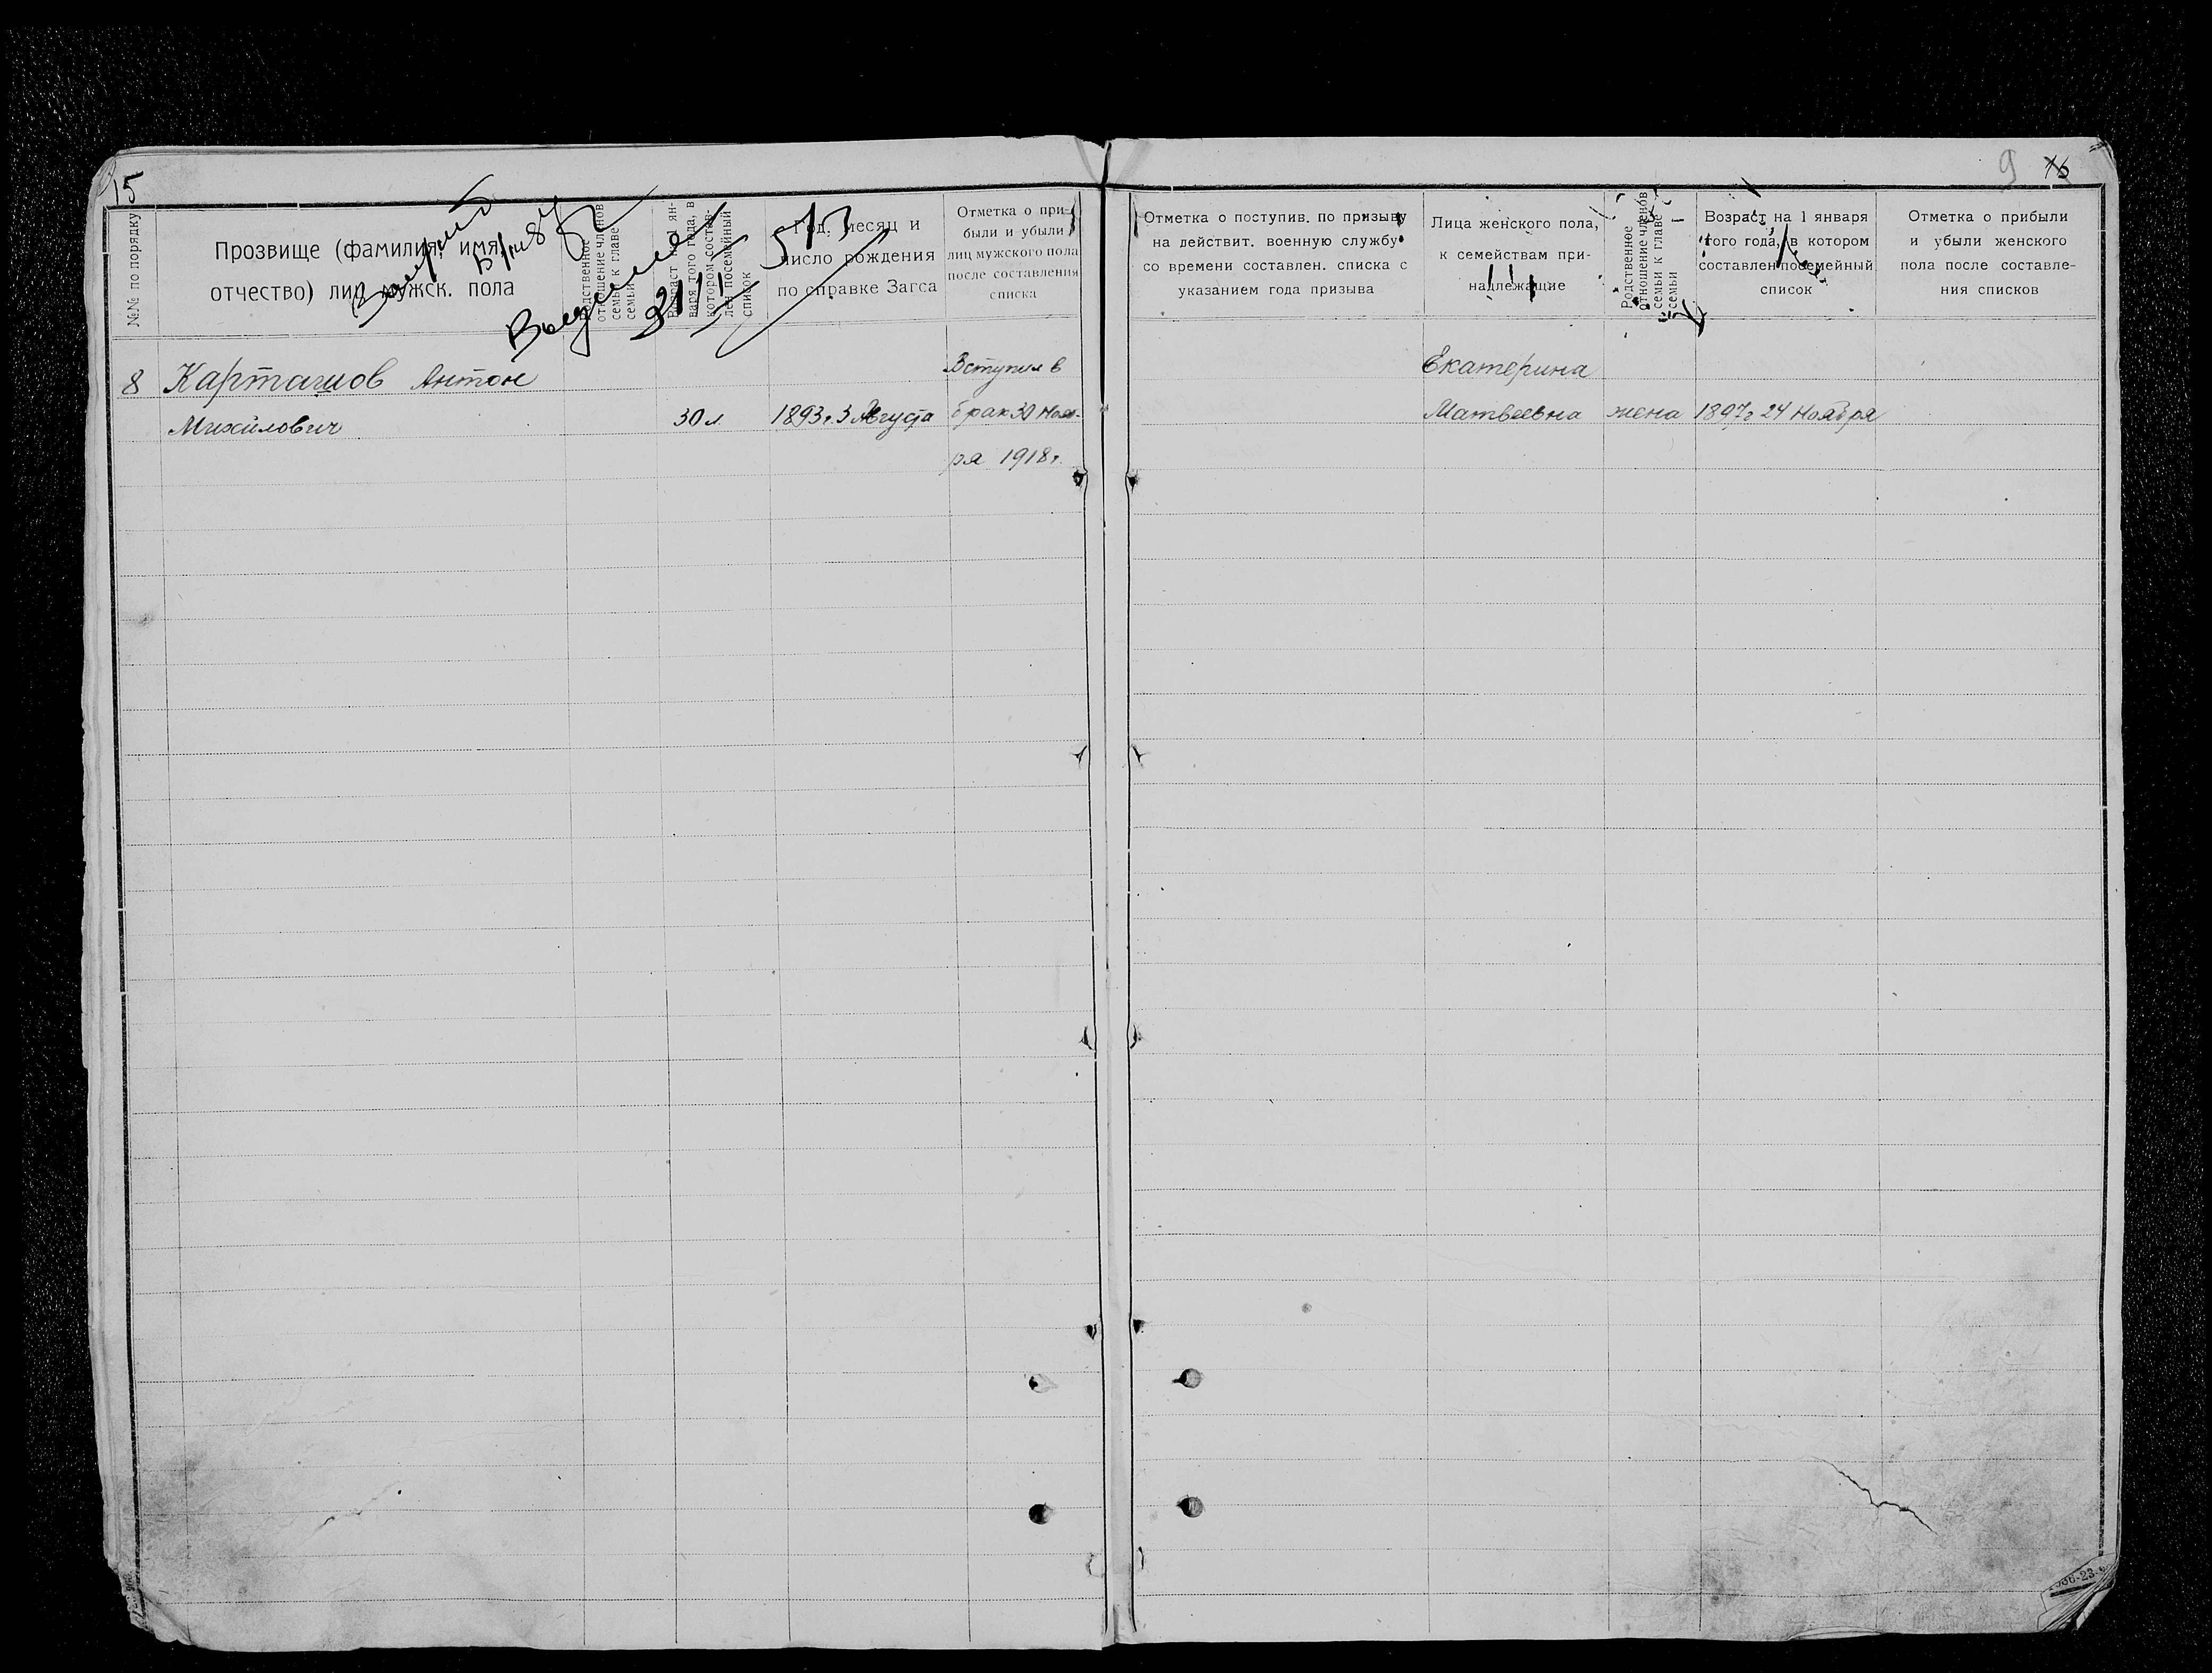 15
9 16
№№ по порядку
Прозвище (фамилия, имя,
отчество) лиц мужск. пола
Родственное
отношение членов
семьи к главе
семьи
Возраст на 1 ян-
варя того года, в
котором состав-
лен посемейный
список
Год, месяц и
число рождения
по справке Загса
Отметка о при-
были и убыли
лиц мужского пола
после составления
списка
Отметка о поступив. по призыву
на действит. военную службу
со времени составлен. списка с
указанием года призыва
Лица женского пола,
к семействам при-
надлежащие
Родственное
отношение членов
семьи к главе
семьи
Возраст на 1 января
того года, в котором
составлен посемейный
список
Отметка о прибыли
и убыли женского
пола после составле-
ния списков
513
8 Карташов Антон
Михайлович
30 л.
1893 г. 3 Августа
Вступил в
брак 30 Нояб-
ря 1918 г.
Екатерина
Матвеевна
жена
1897 г 24 Ноября